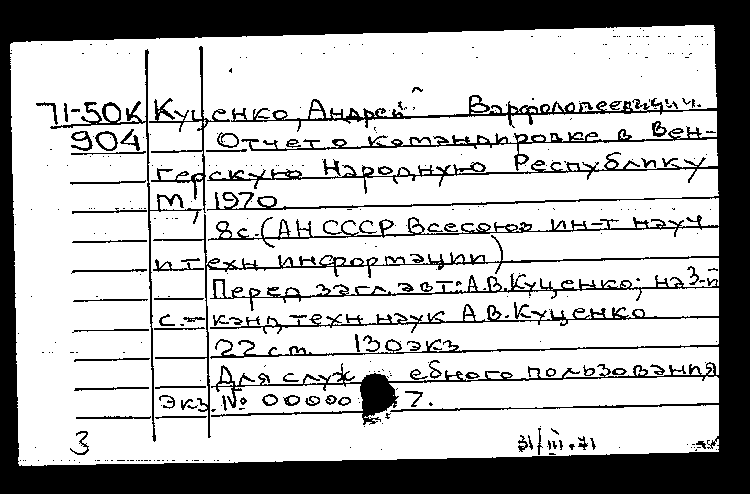 71-50К Куценко, Андрей Варфоломеевич.
904 Отчет о командировке в Вен-
герскую Народную Республику
М, 1970.
8с. (АН СССР Всесоюзн ин-т науч
и техн информации)
Перед загл авт: А.В.Куценко; на 3-й
с. – канд техн наук А.В.Куценко.
22 cm. 130экз
Для служебного пользования
экз. № 00000 7.
3 31/III.71